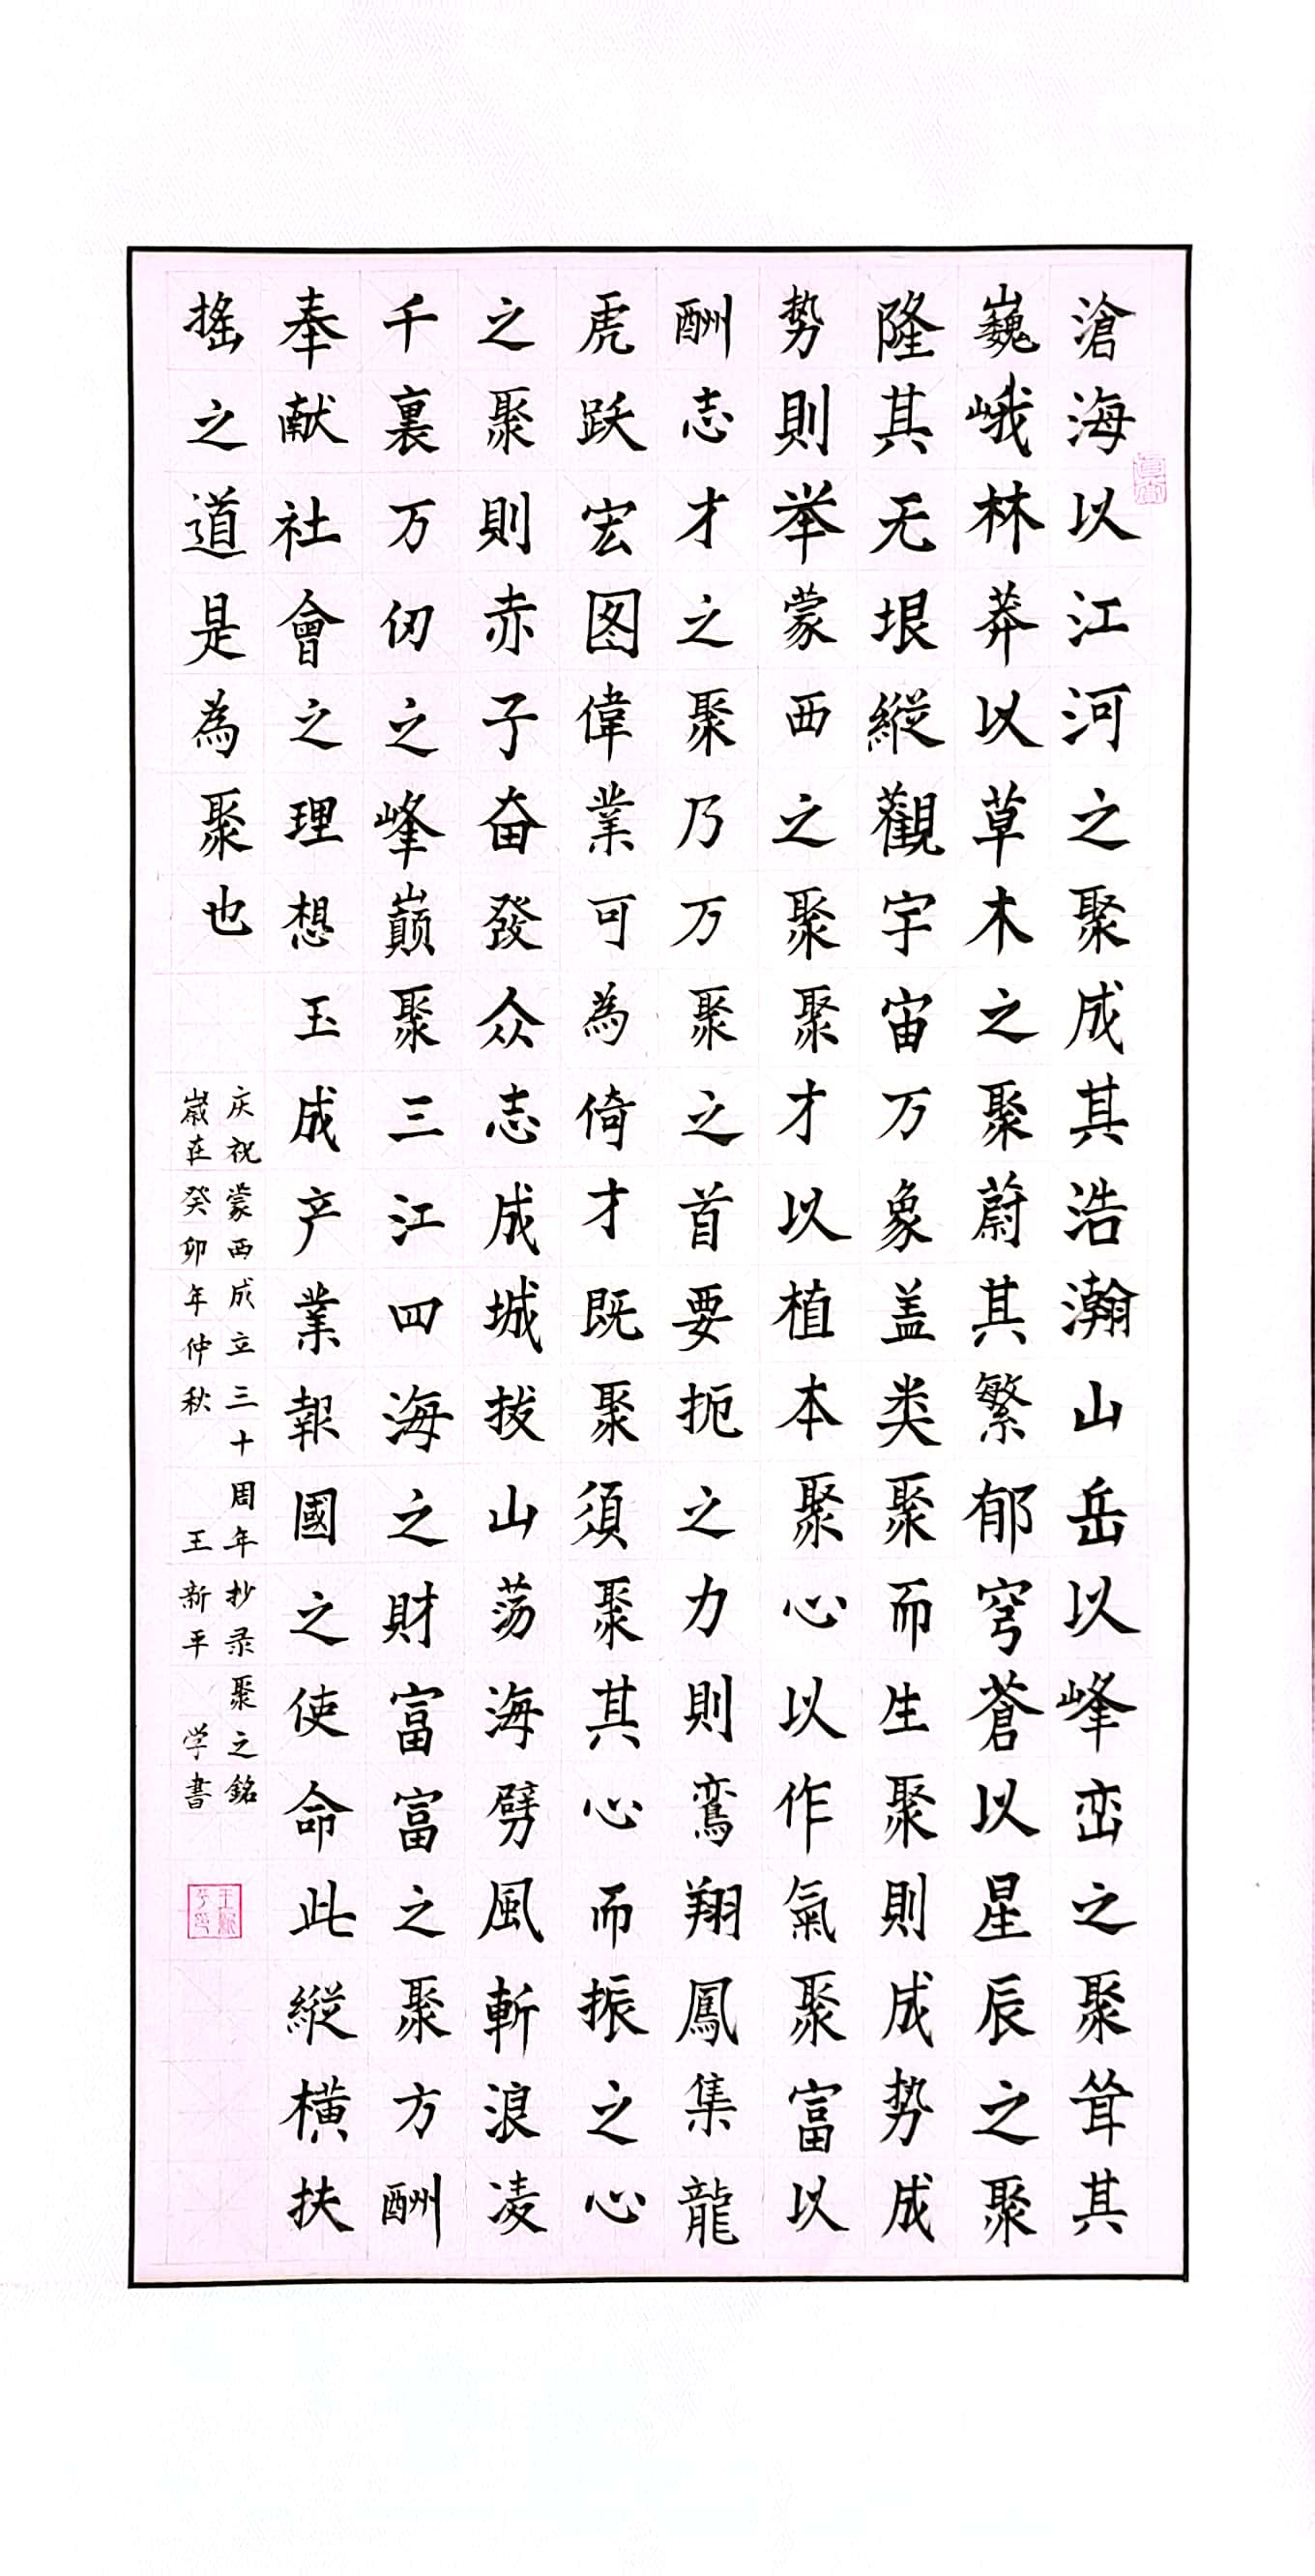 滄海以江河之聚成其浩瀚山岳以峰峦之聚耸其
巍峨林莽以草木之聚蔚其繁郁穹蒼以星辰之聚
隆其无垠縱觀宇宙万象盖类聚而生聚則成势成
势則举蒙西之聚聚才以植本聚心以作氣聚富以
酬志才之聚乃万聚之首要扼之力則鸾翔鳳集龍
虎跃宏图偉業可為倚才既聚須聚其心而振之心
之聚則赤子奋發众志成城拔山荡海劈風斬浪凌
千裏万仞之峰巅聚三江四海之財富富之聚方酬
奉献社會之理想玉成产業報國之使命此縱橫扶
摇之道是為聚也
庆祝蒙西成立三十周年抄录聚之銘
嵗在癸卯年仲秋 王新平 学書